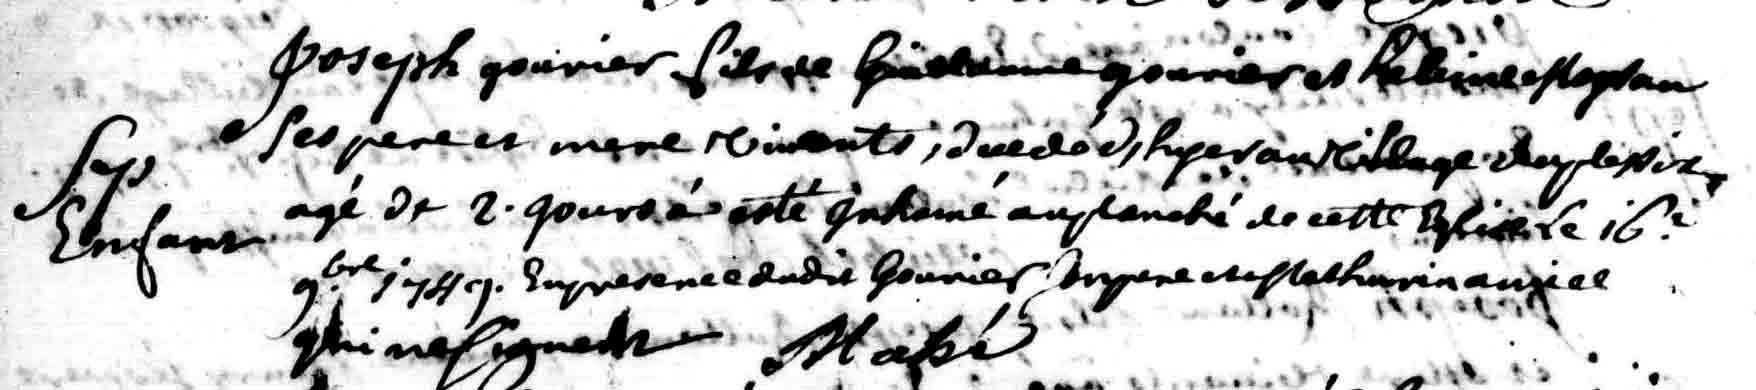 Joseph gourier fils de Guillaume gourier et heleine
Sep
Enfant
ses pere et mere vivents, dcedé d'hyer au village du plessix
agé de 2. jours à esté Inhumé au planché de cette Eglise le 16.e
9.bre 1749. En presence dudit Gourier son pere et Mathurin
qui ne signent Mahé